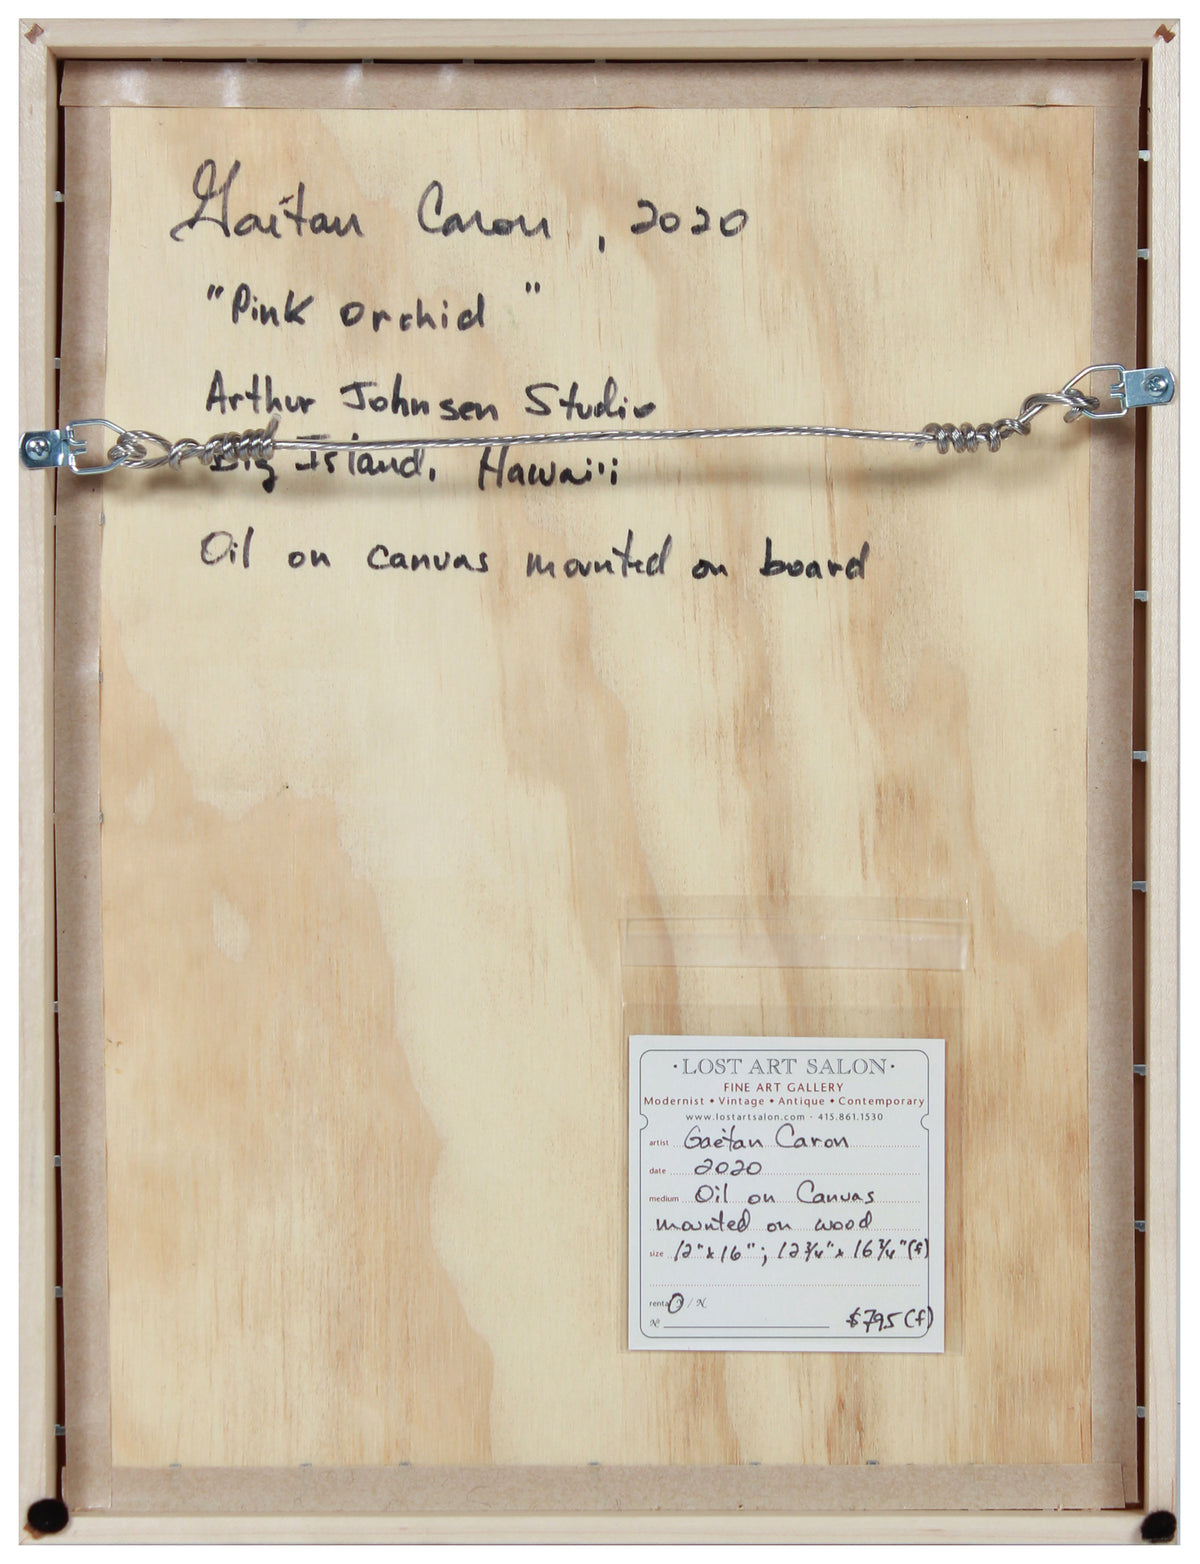 Gaëtan Caron, 2020
"Pink Orchid"
Arthur Johnsen Studio
Big Island, Hawai'i
Oil on canvas mounted on board
·LOST ART SALON·
FINE ART GALLERY
Modernist • Vintage • Antique • Contemporary
www.lostartsalon.com - 415.861.1530
artist Gaëtan Caron
date 2020
medium Oil on Canvas
mounted on wood
size 12"x16"; 12 3/4" x 16 3/4" (f)
rental Y / N
Nº $795 (f)